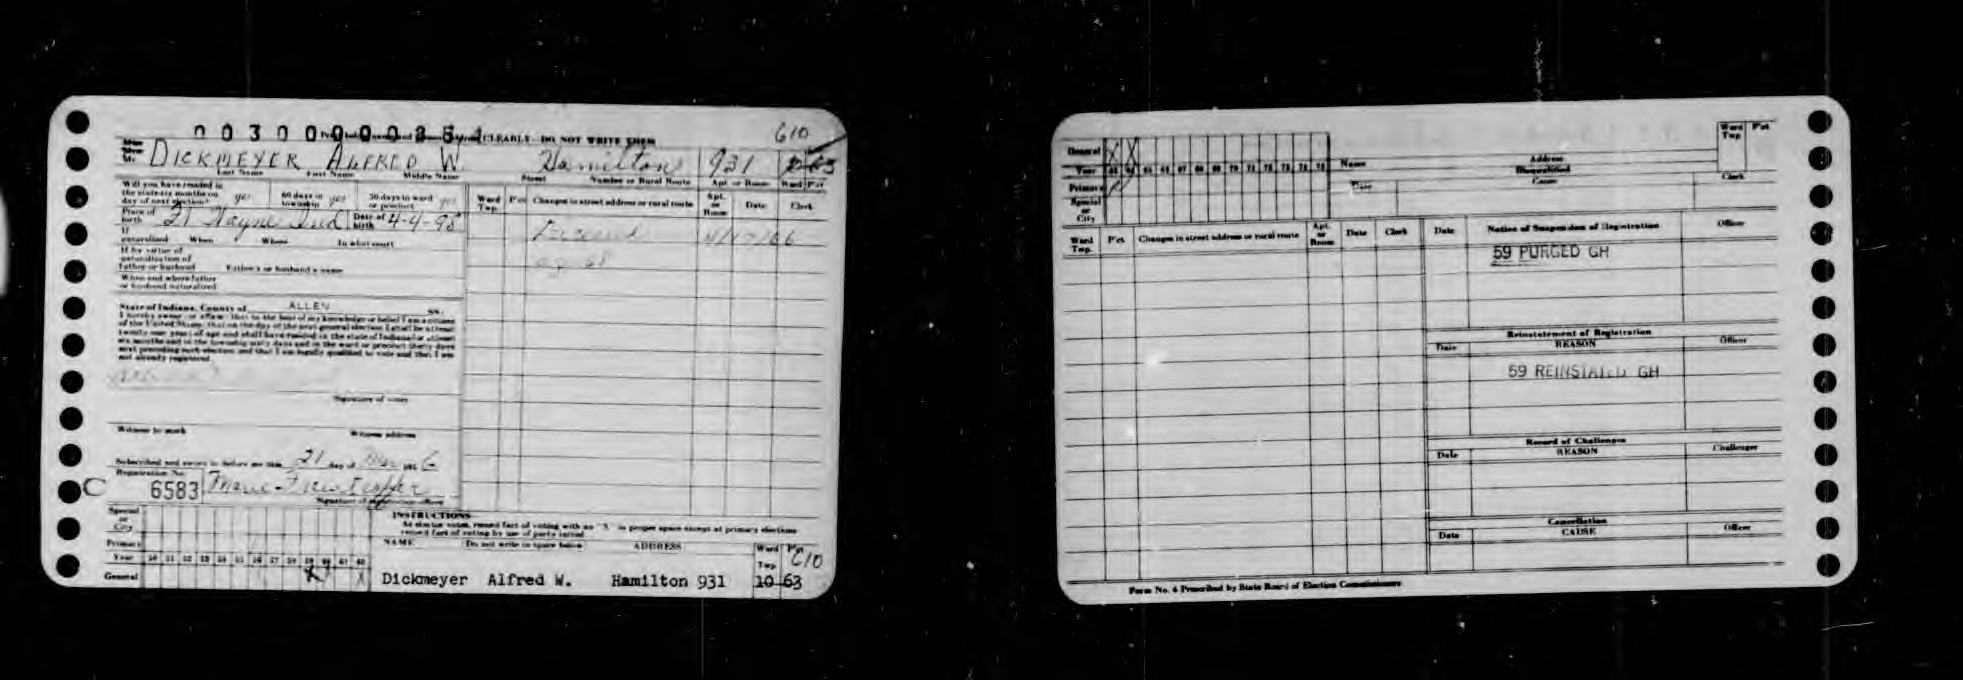 Print CLEARLY. DO NOT WRITE THEM 610
DICKMEYER ALFRED W. Hamilton 931 10-63
Last Name First Name Middle Name Street Number or Rural Route Apt. or Room Ward P'ct
Will you have resided in the state six months on day of next election? yes 60 days in township yes 30 days in ward or precinct yes
Ward Twp. P'ct Changes in street address or rural route Apt. or Room Date Clerk
Place of birth Ft Wayne Ind Date of birth 4-4-98
If naturalized When Where In what court
Deceased 4/17/66
If by virtue of naturalization of Father or husband Father's or husband's name
age 68
When and where father or husband naturalized
State of Indiana, County of ALLEN SS:
I hereby swear or affirm that to the best of my knowledge or belief I am a citizen
of the United States; that on the day of the next general election I shall be at least
twenty-one years of age and shall have resided in the state of Indiana for at least
six months and in the township sixty days and in the ward or precinct thirty days
next preceding such election and that I am legally qualified to vote and that I am
not already registered.
Signature of voter
Witness to mark Witness address
Subscribed and sworn to before me this 21 day of Mar 6
Registration No.
C 6583 Marie
Signature of
INSTRUCTIONS
At elector votes, record fact of voting with an "X" in proper space except at primary elections
record fact of voting by use of party initial
Special or City
Primary
Year 50 51 52 53 54 55 56 57 58 59 60 61 62
General X X
NAME Do not write in space below ADDRESS Ward Twp. P'ct 610
Dickmeyer Alfred W. Hamilton 931 10 63
General X X
Year 63 64 65 66 67 68 69 70 71 72 73 74 75
Primary
Special or City
Name Address Ward Twp. P'ct
Disqualified
Date Cause Clerk
Ward Twp. P'ct Changes in street address or rural route Apt. or Room Date Clerk
Date Notice of Suspension of Registration Officer
59 PURGED GH
Reinstatement of Registration
Date REASON Officer
59 REINSTATED GH
Record of Challenges
Date REASON Challenger
Cancellation
Date CAUSE Officer
Form No. 4 Prescribed by State Board of Election Commissioners